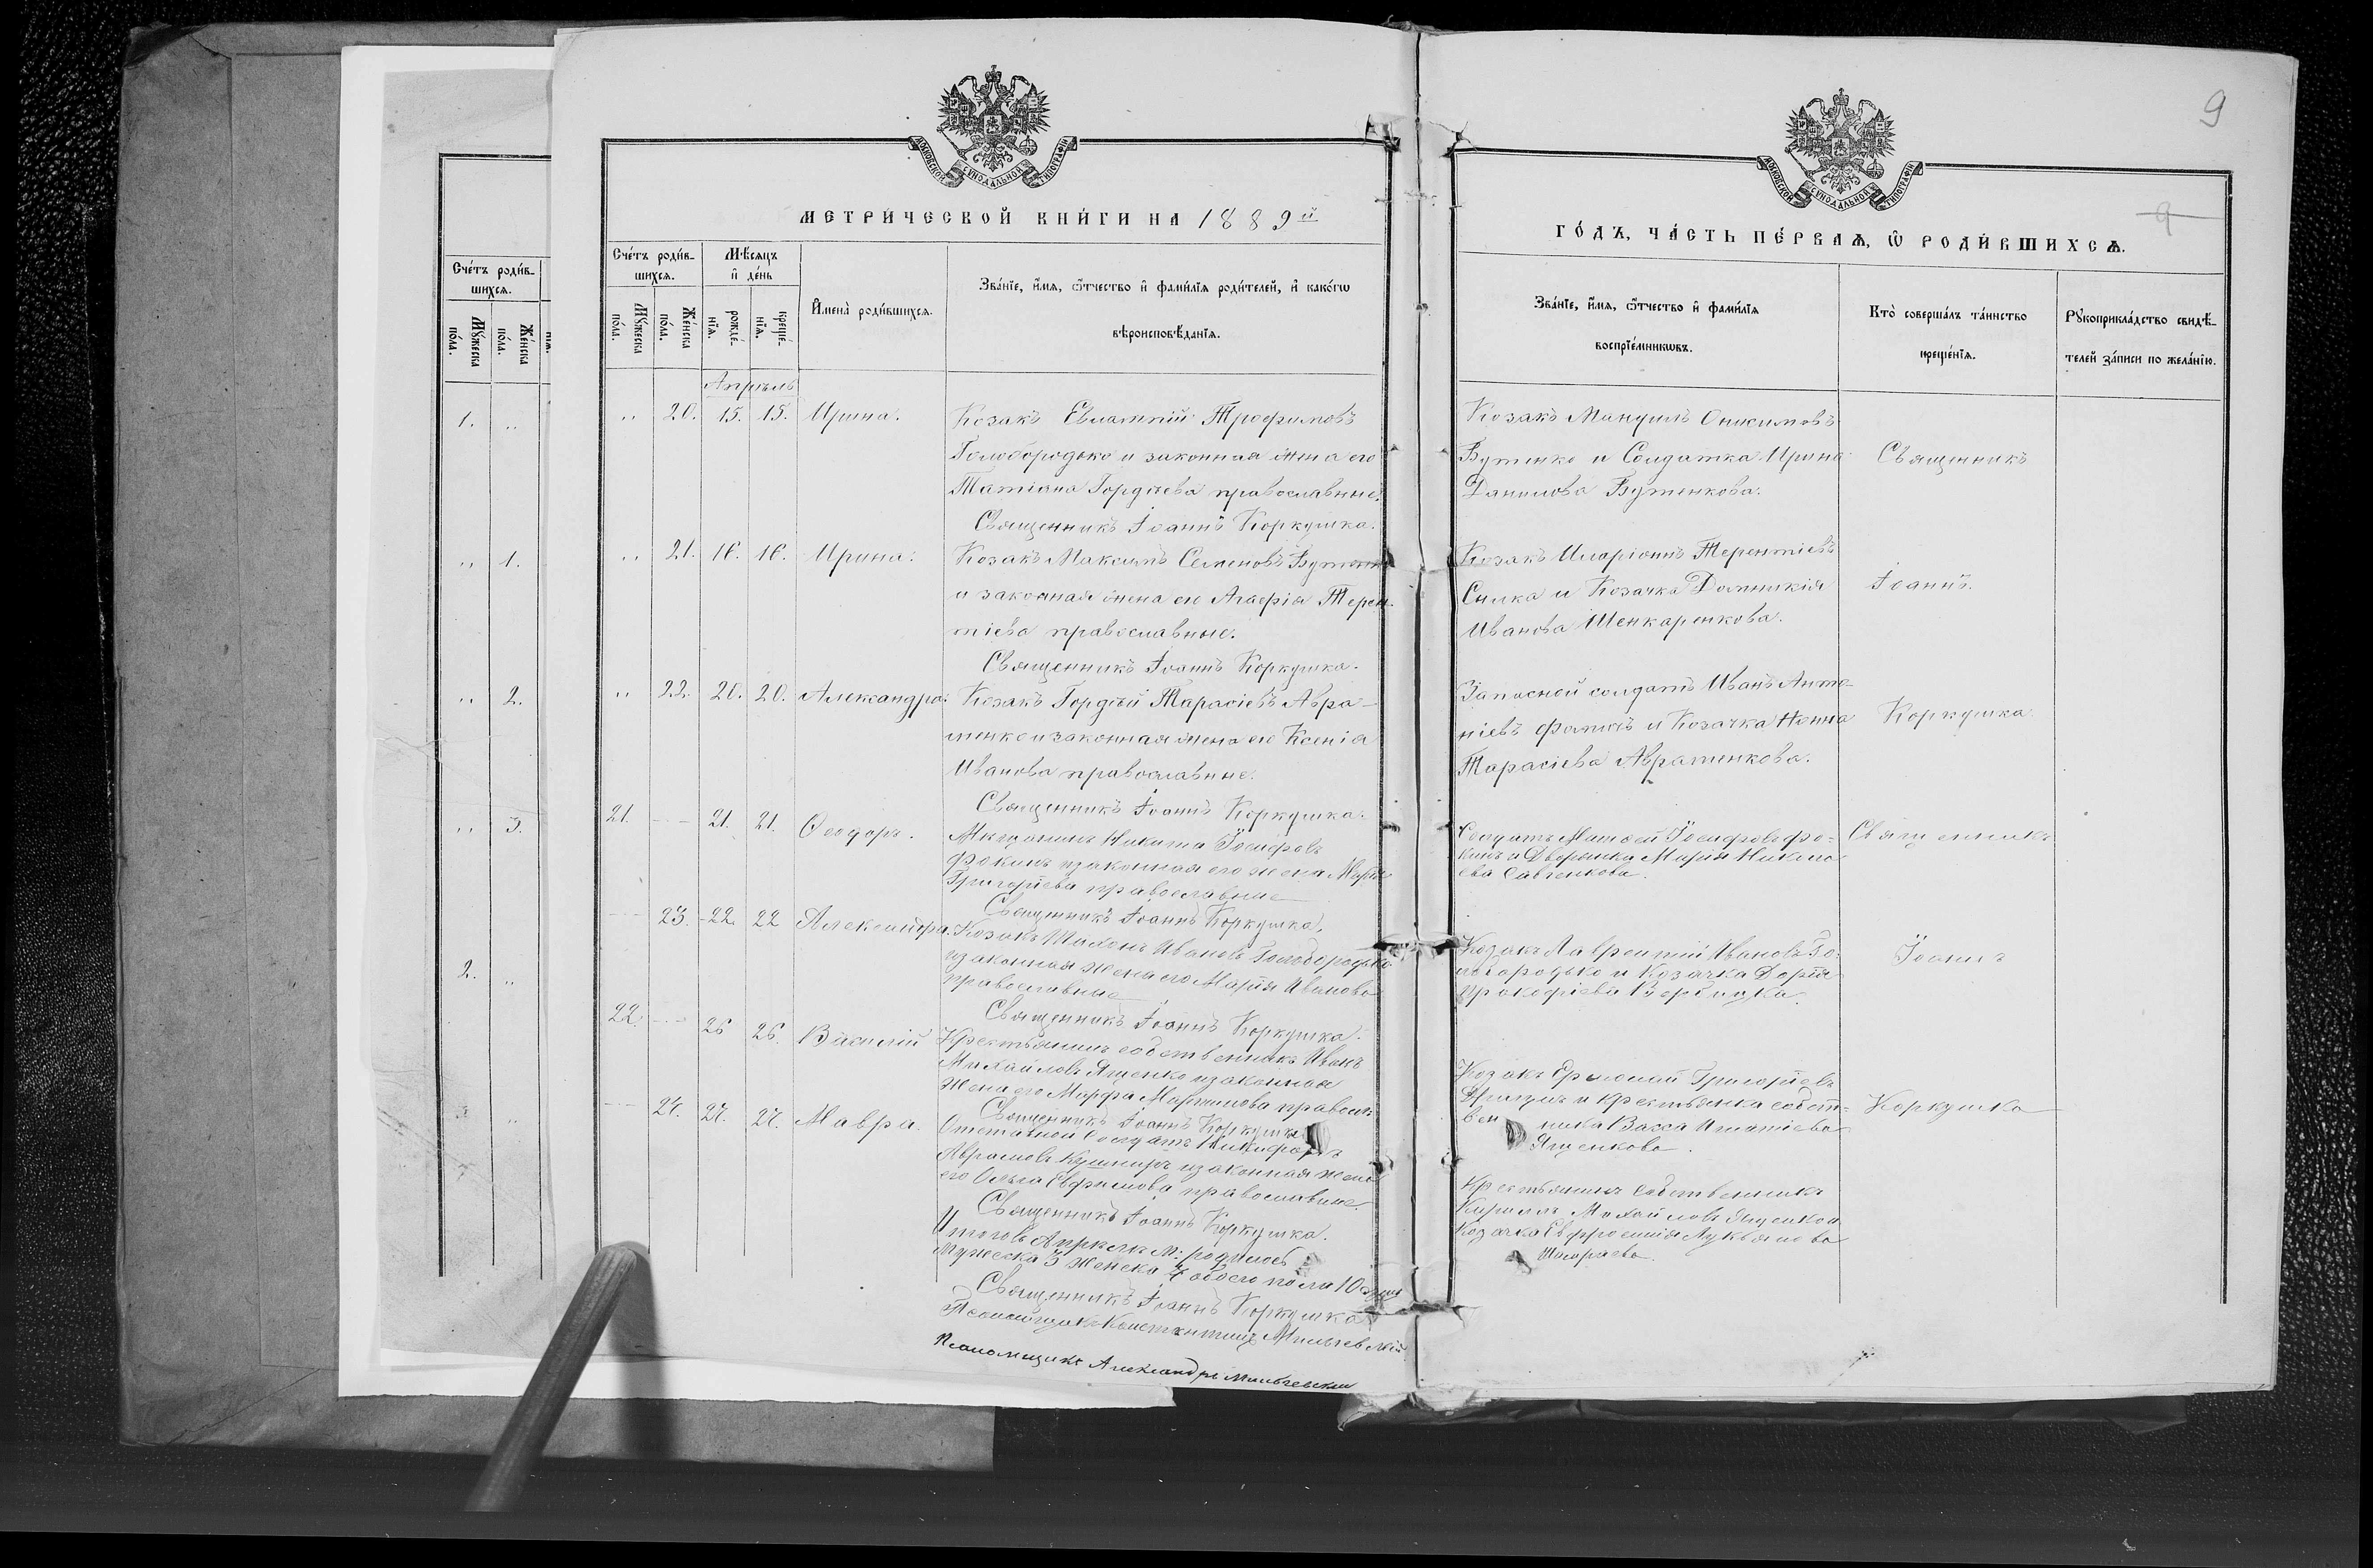 МОСКОВСКОЙ СѴНОДАЛЬНОЙ ТИПОГРАФІИ
МЕТРИЧЕСКОЙ КНИГИ НА 1889 й
Счетъ родив-
шихся.
Мѣсяцъ
и день
Мужеска пола.
Женска пола.
рожде-
нія.
креще-
нія.
Имена родившихся.
Званіе, имя, отчество и фамилія родителей, и какогѡ
вѣроисповѣданія.
Апрѣль
„ 20. 15. 15. Ирина.
Козакъ Евлампій Трофимовъ
Голобородько и законная жена его
Татіана Гордѣева православные.
Священникъ Іоаннъ Коркушка.
„ 21. 16. 16. Ирина.
Козакъ Максимъ Семеновъ Бутенко
и законная жена его Агафія Терен-
тіева православные.
Священникъ Іоаннъ Коркушка.
„ 22. 20. 20. Александра.
Козакъ Гордѣй Тарасіевъ Авра-
менко и законная жена его Ксенія
Иванова православные.
Священникъ Іоаннъ Коркушка.
21. 21. 21. Ѳеодоръ.
Мѣщанинъ Никита Іосифовъ
Фокинъ и законная его жена Марія
Григоріева православные
Священникъ Іоаннъ Коркушка.
23. 22. 22 Александра.
Козакъ Ивановъ Голобородько
и законная жена его Марія Иванова
православные
Священникъ Іоаннъ Коркушка.
22. 26 26. Василій
Крестьянинъ собственникъ Иванъ
Михайловъ Ященко и законная
жена его Марфа Мартинова правосл.
Священникъ Іоаннъ Коркушка
24. 27. 27. Мавра.
Отставной Солдатъ Никифоръ
Аврамовъ Кушниръ и законная жена
его Ольга Ефимова православные.
Священникъ Іоаннъ Коркушка.
Итого въ Апрѣлѣ м: родилось
Мужеска 3 Женска 7 обоего пола 10 душъ
Священникъ Іоаннъ Коркушка
Псаломщикъ Константинъ
Псаломщикъ Александръ
9
МОСКОВСКОЙ СѴНОДАЛЬНОЙ ТИПОГРАФІИ
9
ГОДЪ, ЧАСТЬ ПЕРВАЯ, Ѡ РОДИВШИХСЯ.
Званіе, имя, отчество и фамилія
воспріемникѡвъ.
Кто совершалъ таинство
крещенія.
Рукоприкладство свидѣ-
телей записи по желанію.
Козакъ Мануилъ Онисимовъ
Бутенко и Солдатка Ирина
Данилова Бутенкова.
Козакъ Иларіонъ Терентіевъ
и Козачка Домникія
Иванова Шенкаренкова.
Запасной солдатъ Иванъ Анто-
ніевъ и Козачка Анна
Тарасіева Авраменкова.
Солдатъ Матѳей Іосифовъ Фо-
кинъ и Дворянка Марія Никола-
ева Савченкова.
Козакъ Лаврентій Ивановъ Го-
лобородько и Козачка Дарія
Прокофіева Вербицка.
Козакъ Ермолай Григоріевъ
и крестьянка собст-
вен ника Васса Игнатіева
Ященкова.
Крестьянинъ собственникъ
Кириллъ Михайловъ Ященко и
Козачка Евфросинія Лукьянова
Священникъ
Іоаннъ.
Коркушка
Священникъ
Іоаннъ
Коркушка
Счетъ родив-
шихся.
Мужеска пола.
Женска пола.
1. „
„ 1.
„ 2.
„ 3.
2. „
3. „